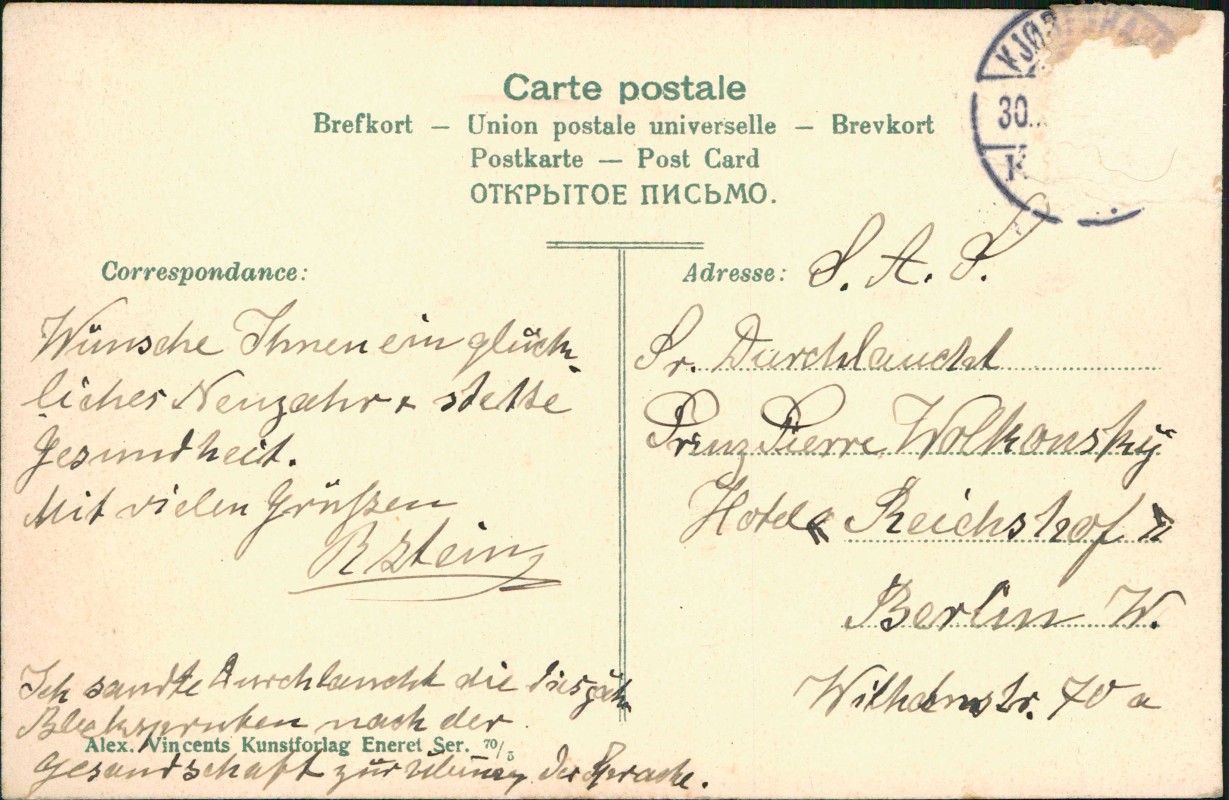 Carte postale
Brefkort — Union postale universelle — Brevkort
Postkarte — Post Card
ОТКРЫТОЕ ПИСЬМО.
KJØB
30.
K
Correspondance:
Wünsche Ihnen ein glück-
liches Neujahr + stette
Gesundheit.
Mit vielen Grüßen
R Stein
Ich sandte Durchlaucht die
nach der
Gesandschaft zur Übung der Sprache.
Alex. Vincents Kunstforlag Eneret Ser. 70/5
Adresse: S. A. S.
Sr. Durchlaucht
Prinz Pierre Wolkonsky
Hotel « Reichshof »
Berlin W.
Wilhelmstr. 70 a